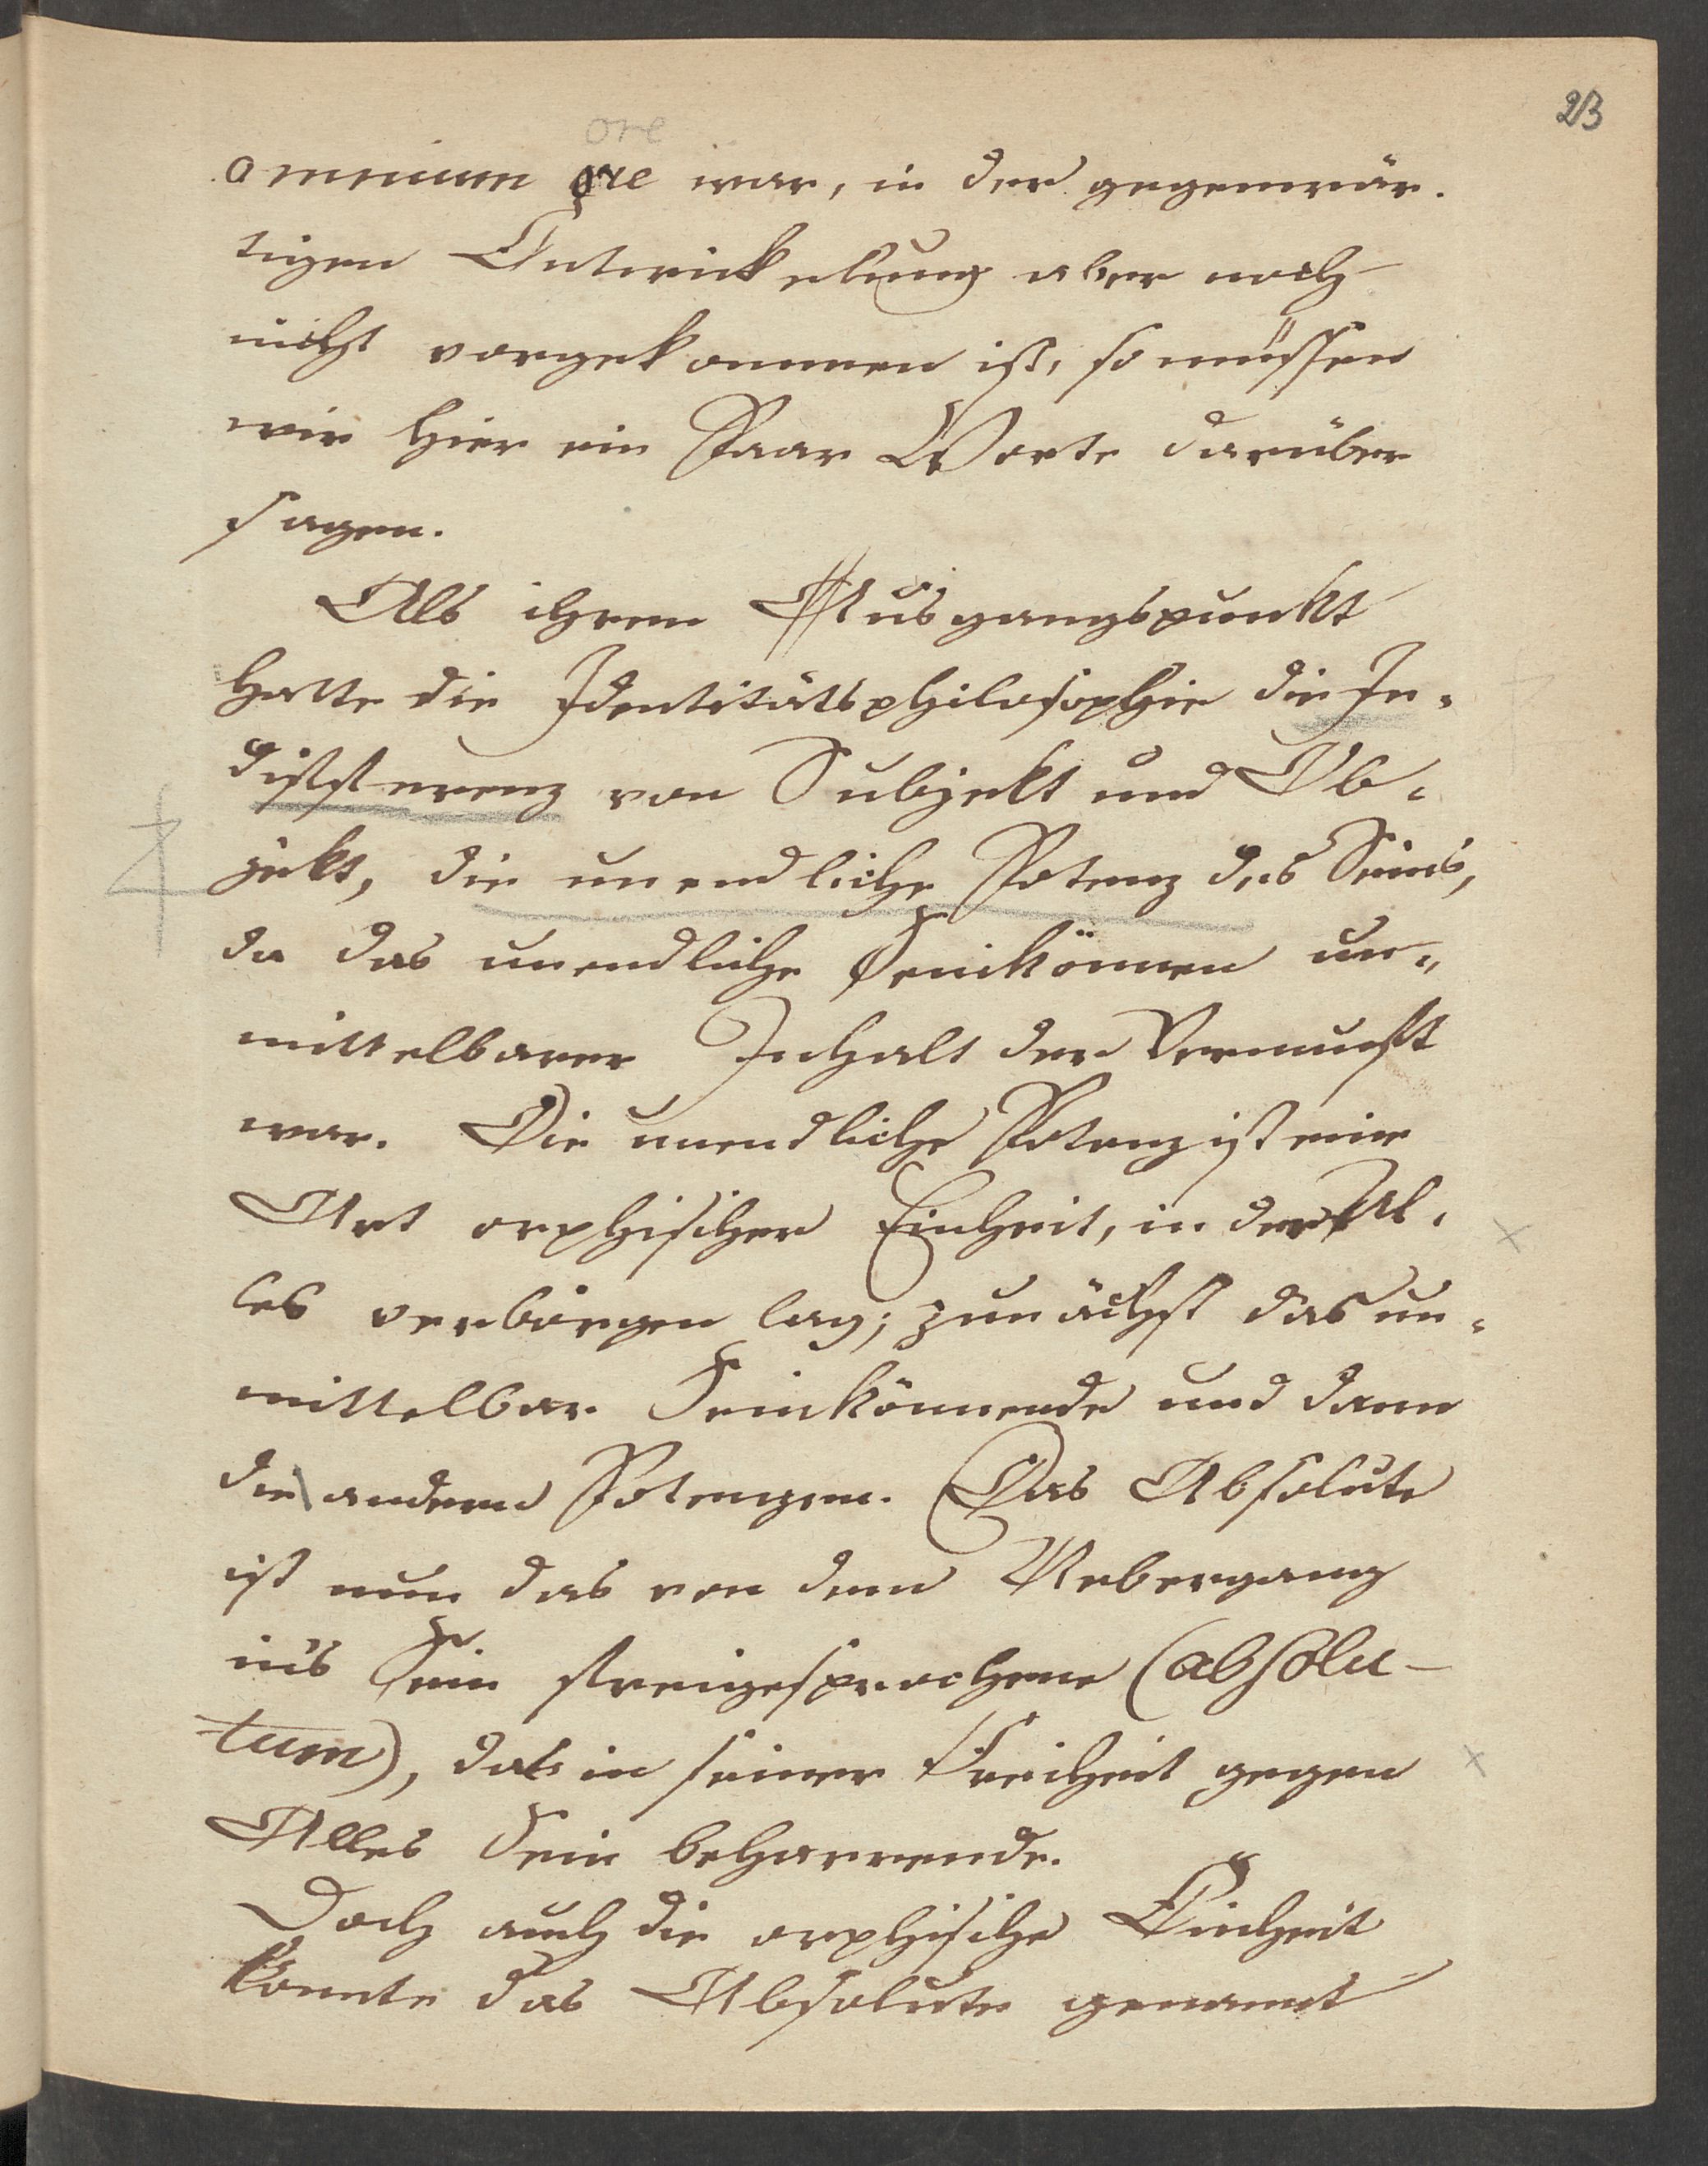 23
ore
omnium ore war, in der gegenwär-
tigen Entwickelung aber noch
nicht vorgekommen ist, so müssen
wir hier ein Paar Worte darüber
sagen.
Als ihren Ausgangspunkt
hatte die Identitätsphilosophie die In-
differenz von Subjekt und Ob-
jekt, die unendliche Potenz des Seins,
da das unendliche Seinkönnen un-
mittelbarer Inhalt der Vernunft
war. Die unendliche Potenz ist eine
Art orphischer Einheit, in der Al-
les verborgen lag; zunächst das un-
mittelbar Seinkönnende und dann
die andern Potenzen. Das Absolute
ist nun das von dem Uebergang
in's Sein freigesprochene (absolu-
tum), das in seiner Freiheit gegen
Alles Sein beharrende.
Doch auch die orphische Einheit
konnte das Absolute genannt